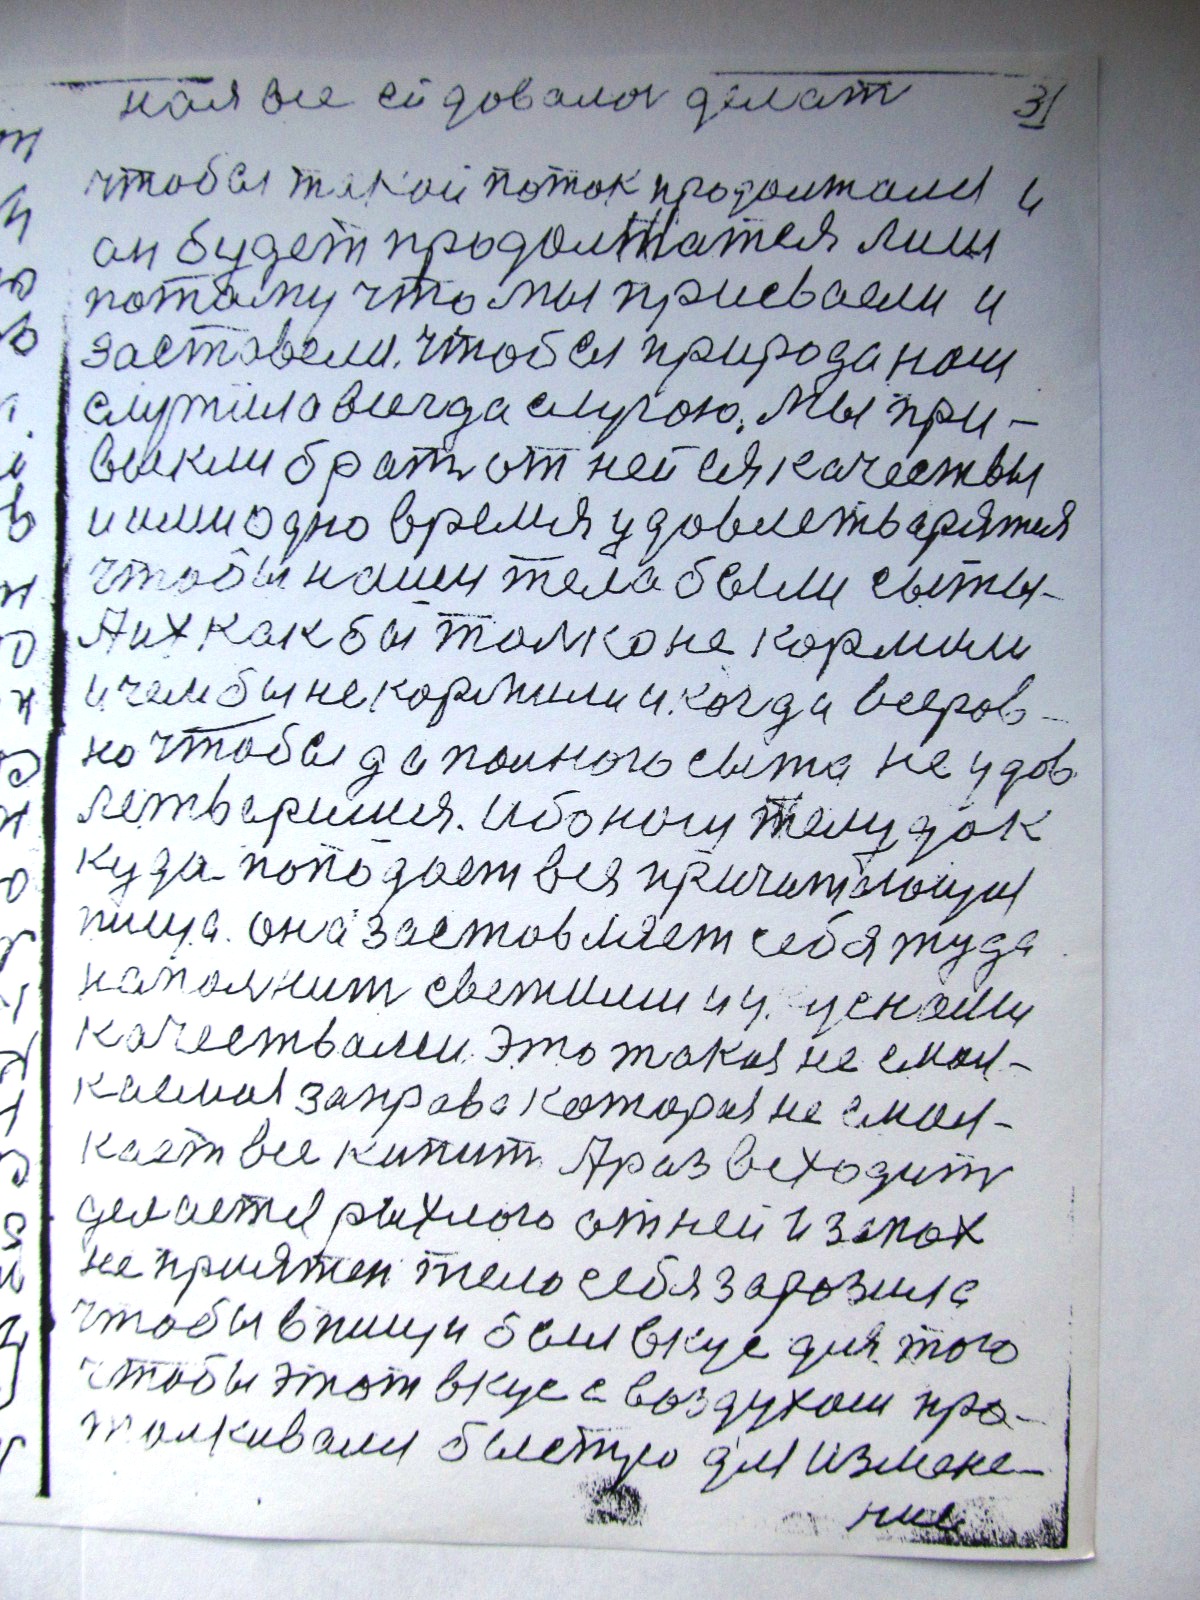 ная все ей довала делат 31
чтобы такой поток продолжали и
он будет продолжатся лиш
потому что мы присваели и
заставели. чтобы природа нам
служила всегда слугою. Мы при-
выкли брать от ней ся качествы
и ими одно время удовлетварятся
чтобы наши тела были сыты-
А их как бы толко не кормили
и чем бы не кормили и. когда всеров-
но чтобы да полного сыта не удов
летварился. Ибо ногу желудок
куда попадает вся причитающия
пища. она заставляет себя туда
наполнит свежими и усными
качествами. Это такая не смол-
каемая заправа которая не смол-
кает все кипит А раз всходит
делается рыхлого от ней и запох
не приятен тело себя зарозила
чтобы в пищи был вкус для того
чтобы этот вкус с воздухом про-
толкивали быстро для измене-
ние